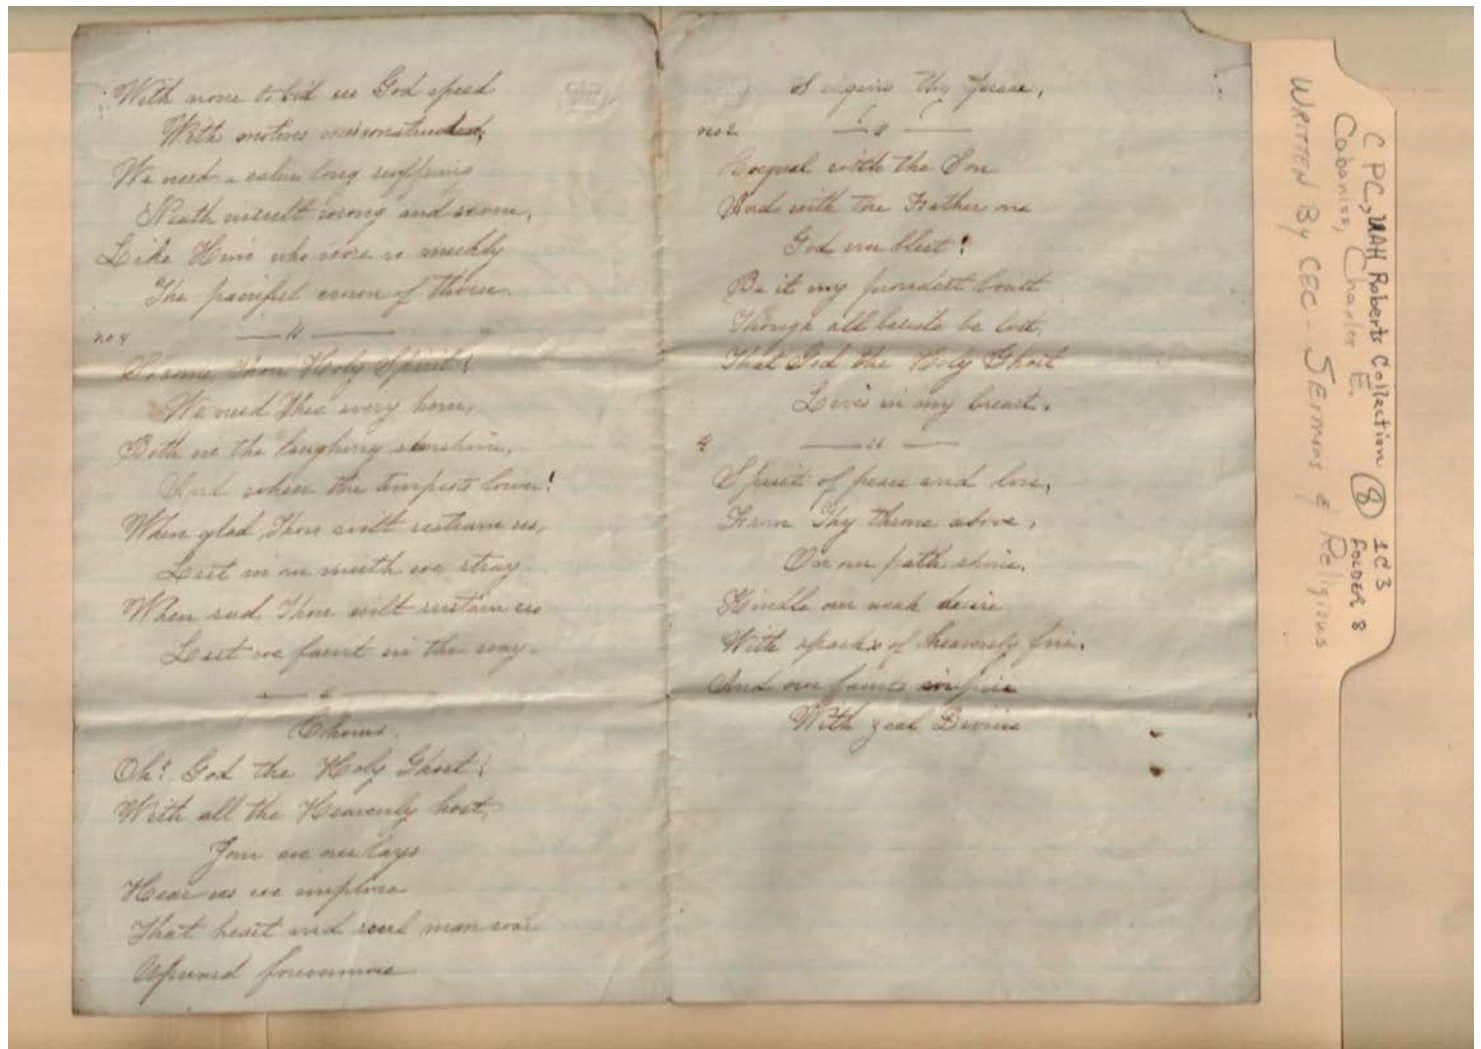 With none to bid us God speed
With motives misconstrued,
We need a calm long suffering
'Neath insult wrong and scorn,
Like Him who wore so meekly
The painful crown of thorns.
So come, Thou Holy Spirit!
We need Thee every hour,
Both in the laughing sunshine,
And when the tempests lower!
When glad, Thou wilt restrain us,
Lest in our mirth we stray
When sad, Thou wilt sustain us
Lest we faint in the way.
Chorus.
Oh! God the Holy Ghost!
With all the Heavenly host,
Join we our lays
Hear us we implore
That heart and soul may soar
Upward forevermore
Singing Thy praise,
no 2
Coequal with the Son
And with the Father one
God ever blest!
Be it my proudest boast
Though all beside be lost,
That God the Holy Ghost
Lives in my breast.
Spirit of peace and love,
From Thy throne above,
On our path shine,
Kindle our weak desire
With sparks of heavenly fire,
And our faint inspire
With zeal Divine
C PC, UAH Roberts Collection (8) 1C3
FOLDER 8
Cabaniss, Charles E.
WRITTEN By CEC - SErmons & Religious